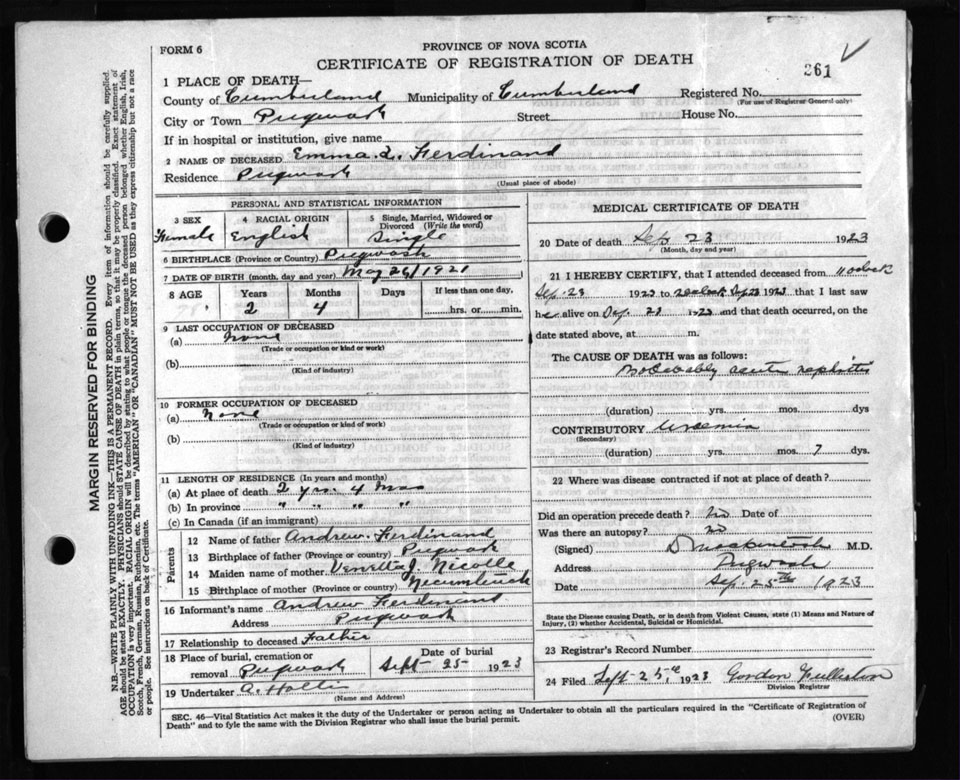 FORM 6
PROVINCE OF NOVA SCOTIA
CERTIFICATE OF REGISTRATION OF DEATH
261
1 PLACE OF DEATH—
County of Cumberland Municipality of Cumberland Registered No.
(For use of Registrar General only)
City or Town Pugwash Street House No.
If in hospital or institution, give name
2 NAME OF DECEASED Emma L. Ferdinand
Residence Pugwash
(Usual place of abode)
MARGIN RESERVED FOR BINDING
N.B.—WRITE PLAINLY WITH UNFADING INK—THIS IS A PERMANENT RECORD. Every item of information should be carefully supplied.
AGE should be stated EXACTLY. PHYSICIANS should STATE CAUSE OF DEATH in plain terms, so that it may be properly classified. Exact statement of
OCCUPATION is very important. RACIAL ORIGIN will be described by stating to what people or tongue the deceased person belonged whether English, Irish,
Scotch, French, German, Russian, Ruthenian, etc. The terms "AMERICAN" OR "CANADIAN" MUST NOT BE USED as they express citizenship but not a race
or people. See instructions on back of Certificate.
PERSONAL AND STATISTICAL INFORMATION
3 SEX
Female
4 RACIAL ORIGIN
English
5 Single, Married, Widowed or
Divorced (Write the word)
Single
6 BIRTHPLACE (Province or Country) Pugwash
7 DATE OF BIRTH (month, day and year) May 26/1921
8 AGE Years Months Days If less than one day,
2 4 hrs. or min.
9 LAST OCCUPATION OF DECEASED
(a) None
(Trade or occupation or kind of work)
(b)
(Kind of industry)
10 FORMER OCCUPATION OF DECEASED
(a) None
(Trade or occupation or kind of work)
(b)
(Kind of industry)
11 LENGTH OF RESIDENCE (In years and months)
(a) At place of death 2 yrs. 4 Mos
(b) In province " " " "
(c) In Canada (if an immigrant)
Parents
12 Name of father Andrew Ferdinand
13 Birthplace of father (Province or country) Pugwash
14 Maiden name of mother J. Nicolle
15 Birthplace of mother (Province or country)
16 Informant's name Andrew Ferdinand
Address Pugwash
17 Relationship to deceased Father
18 Place of burial, cremation or
removal Pugwash
Date of burial
Sept 25 1923
19 Undertaker A.
(Name and Address)
MEDICAL CERTIFICATE OF DEATH
20 Date of death Sep. 23 1923
(Month, day and year)
21 I HEREBY CERTIFY, that I attended deceased from
Sep. 23 1923 to Sep 23 1923 that I last saw
her alive on 23 1923 and that death occurred, on the
date stated above, at m.
The CAUSE OF DEATH was as follows:
Probably acute nephritis
(duration) yrs. mos. dys
CONTRIBUTORY Uraemia
(Secondary)
(duration) yrs. mos. 7 dys.
22 Where was disease contracted if not at place of death?
Did an operation precede death? No Date of
Was there an autopsy? no
(Signed) D Mackintosh M.D.
Address Pugwash
Date Sep. 25th 1923
State the Disease causing Death, or in death from Violent Causes, state (1) Means and Nature of
Injury, (2) whether Accidental, Suicidal or Homicidal.
23 Registrar's Record Number
24 Filed Sept 25, 1923 Gordon Fullerton
Division Registrar
SEC. 46—Vital Statistics Act makes it the duty of the Undertaker or person acting as Undertaker to obtain all the particulars required in the "Certificate of Registration of
Death" and to fyle the same with the Division Registrar who shall issue the burial permit.
(OVER)